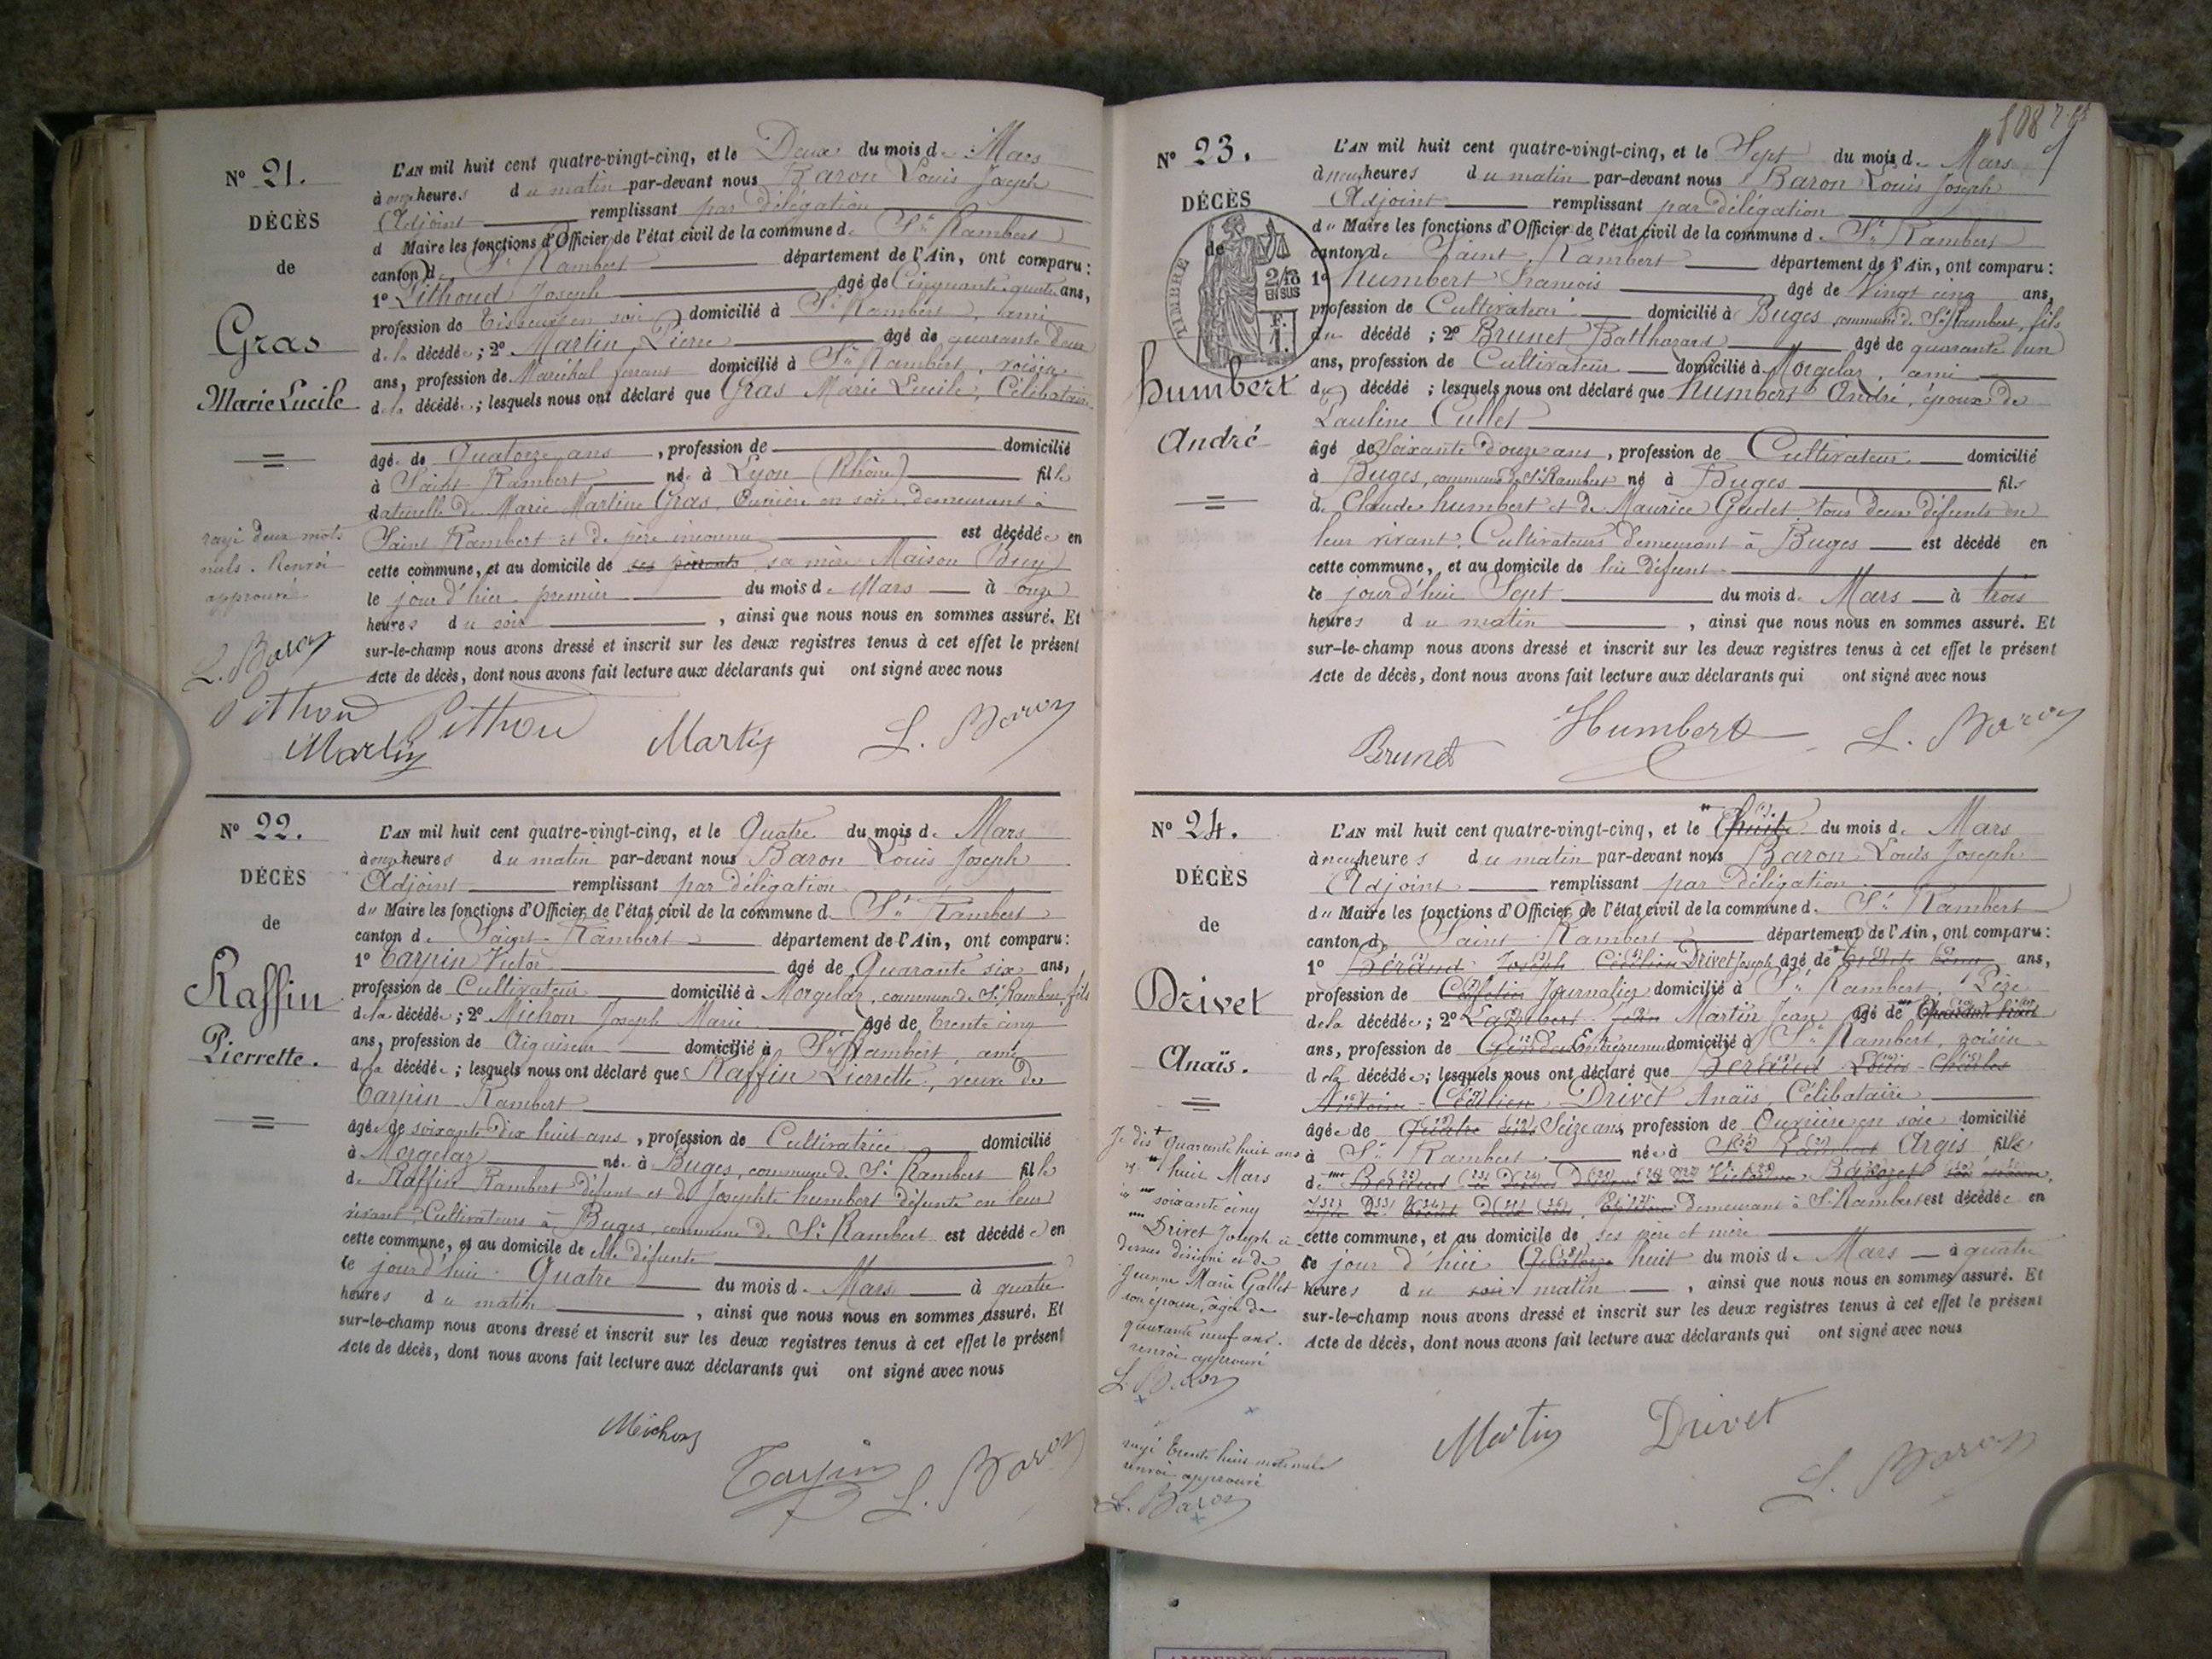 N° 21.
DÉCÈS
de
Gras
Marie Lucile
rayé deux mots
nuls. Renvoi
approuvé
L. Baron
Pithou
Martin
L'AN mil huit cent quatre-vingt-cinq, et le Deux du mois de Mars
à onze heures du matin par-devant nous Baron Louis Joseph
Adjoint remplissant par délégation
d Maire les fonctions d'Officier de l'état civil de la commune de St Rambert
canton de St Rambert département de l'Ain, ont comparu:
1° Pithoud Joseph âgé de Cinquante quatre ans,
profession de Tisseur en soie domicilié à St Rambert, ami
de la décédée; 2° Martin Pierre âgé de quarante deux
ans, profession de Maréchal ferrant domicilié à St Rambert, voisin
de la décédée; lesquels nous ont déclaré que Gras Marie Lucile, Célibataire
âgée de Quatorze ans, profession de domicilié
à Saint Rambert née à Lyon (Rhône) fille
naturelle de Marie Martine Gras, Ouvrière en soie, demeurant à
Saint Rambert et de père inconnu est décédée en
cette commune, et au domicile de ses parents sa mère Maison Buy
le jour d'hier premier du mois de Mars à onze
heures du soir, ainsi que nous nous en sommes assuré. Et
sur-le-champ nous avons dressé et inscrit sur les deux registres tenus à cet effet le présent
Acte de décès, dont nous avons fait lecture aux déclarants qui ont signé avec nous
Pithou Martin L. Baron
N° 22.
DÉCÈS
de
Raffin
Pierrette.
L'AN mil huit cent quatre-vingt-cinq, et le Quatre du mois de Mars
à onze heures du matin par-devant nous Baron Louis Joseph
Adjoint remplissant par délégation
du Maire les fonctions d'Officier de l'état civil de la commune de St Rambert
canton de Saint Rambert département de l'Ain, ont comparu:
1° Carpin Victor âgé de Quarante six ans,
profession de Cultivateur domicilié à Morgelaz, commune de St Rambert, fils
de la décédée; 2° Michon Joseph Marie âgé de trente cinq
ans, profession de Aiguiseur domicilié à St Rambert, ami
de la décédée; lesquels nous ont déclaré que Raffin Pierrette, veuve de
Carpin Rambert
âgée de soixante dix huit ans, profession de Cultivatrice domicilié
à Morgelaz née à Buges, commune de St Rambert fille
de Raffin Rambert défunt et de Josephte humbert défunte en leur
vivant, Cultivateurs à Buges, commune de St Rambert est décédée en
cette commune, et au domicile de elle défunte
le jour d'hui Quatre du mois de Mars à quatre
heures du matin, ainsi que nous nous en sommes assuré. Et
sur-le-champ nous avons dressé et inscrit sur les deux registres tenus à cet effet le présent
Acte de décès, dont nous avons fait lecture aux déclarants qui ont signé avec nous
Michon
Carpin L. Baron
108
N° 23.
DÉCÈS
de
TIMBRE
2/10
EN SUS
F.
1.
humbert
André
L'AN mil huit cent quatre-vingt-cinq, et le Sept du mois de Mars
à neuf heures du matin par-devant nous Baron Louis Joseph
Adjoint remplissant par délégation
du Maire les fonctions d'Officier de l'état civil de la commune de St Rambert
canton de Saint Rambert département de l'Ain, ont comparu:
1° humbert François âgé de Vingt cinq ans,
profession de Cultivateur domicilié à Buges, commune de St Rambert, fils
du décédé; 2° Brunet Balthazard âgé de quarante un
ans, profession de Cultivateur domicilié à Morgelaz, ami
du décédé; lesquels nous ont déclaré que humbert André, époux de
Pauline Cullet
âgé de Soixante douze ans, profession de Cultivateur domicilié
à Buges, commune de St Rambert né à Buges fils
de Claude humbert et de Maurice Gudet tous deux défunts en
leur vivant, Cultivateurs demeurant à Buges est décédé en
cette commune, et au domicile de lui défunt
le jour d'hui Sept du mois de Mars à trois
heures du matin, ainsi que nous nous en sommes assuré. Et
sur-le-champ nous avons dressé et inscrit sur les deux registres tenus à cet effet le présent
Acte de décès, dont nous avons fait lecture aux déclarants qui ont signé avec nous
Brunet Humbert L. Baron
N° 24.
DÉCÈS
de
Drivet
Anaïs.
Je dis + Quarante huit ans
huit Mars
soixante cinq
Drivet Joseph ci
dessus désigné et de
Jeanne Marie Gallet
son épouse, âgée de
quarante neuf ans.
renvoi approuvé
L. Baron
rayé trente huit mots nuls
renvoi approuvé
L. Baron
L'AN mil huit cent quatre-vingt-cinq, et le huit du mois de Mars
à neuf heures du matin par-devant nous Baron Louis Joseph
Adjoint remplissant par délégation
du Maire les fonctions d'Officier de l'état civil de la commune de St Rambert
canton de Saint Rambert département de l'Ain, ont comparu:
1° Béraud Joseph Cédilien Drivet Joseph âgé de ans,
profession de Journalier domicilié à St Rambert, Père
de la décédée; 2° Lambert Jean Martin Jean âgé de
ans, profession de Entrepreneur domicilié à St Rambert, voisin
de la décédée; lesquels nous ont déclaré que Béraud Louis Charles
Drivet Anaïs, Célibataire
âgée de Quatre Seize ans, profession de Ouvrière en soie domicilié
à St Rambert née à St Rambert Argis fille
de Béraud
demeurant à St Rambert est décédée en
cette commune, et au domicile de ses père et mère
le jour d'hui Quatorze huit du mois de Mars à quatre
heures du soir matin, ainsi que nous nous en sommes assuré. Et
sur-le-champ nous avons dressé et inscrit sur les deux registres tenus à cet effet le présent
Acte de décès, dont nous avons fait lecture aux déclarants qui ont signé avec nous
Martin Drivet
L. Baron